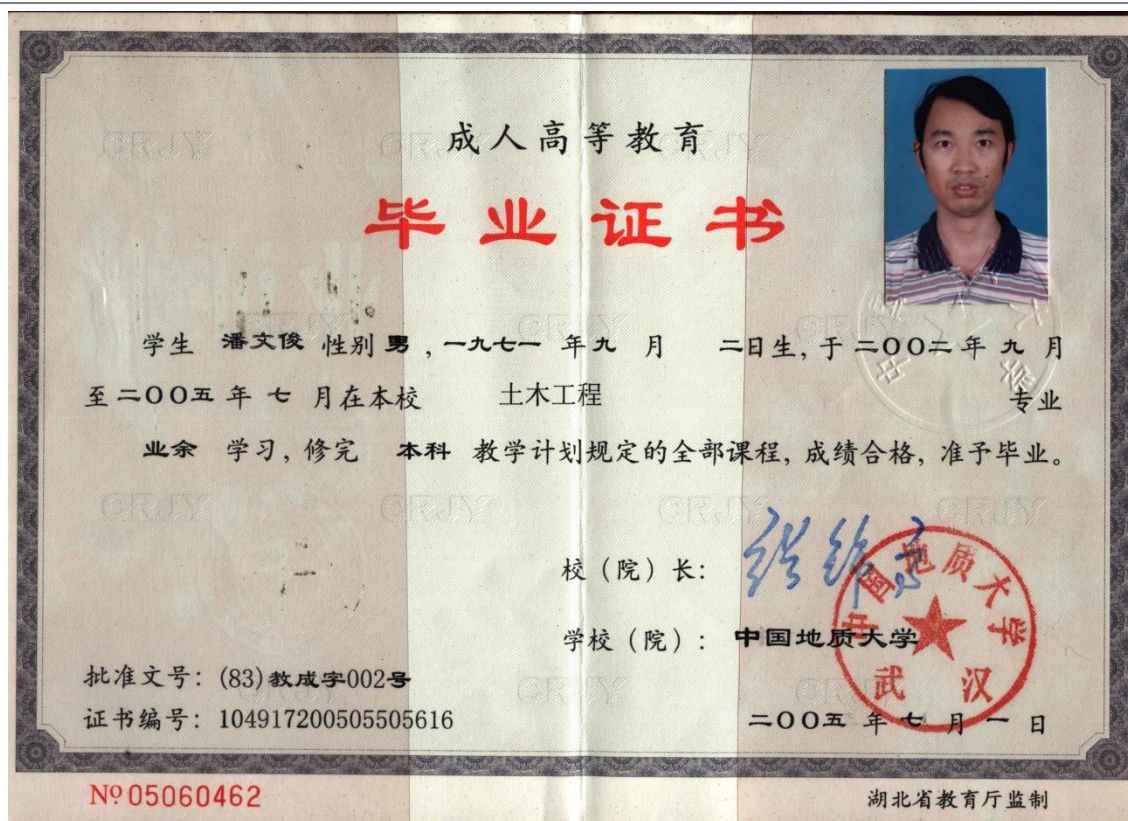 成人高等教育
毕业证书
学生 潘文俊 性别 男，一九七一 年 九 月 二日生，于 二〇〇二 年 九 月
至 二〇〇五 年 七 月在本校 土木工程 专业
业余 学习，修完 本科 教学计划规定的全部课程，成绩合格，准予毕业。
校（院）长：
学校（院）：中国地质大学
中国地质大学
武汉
批准文号：(83)教成字002号
证书编号：104917200505505616
二〇〇五 年 七 月 一 日
№ 05060462
湖北省教育厅监制
CRJY